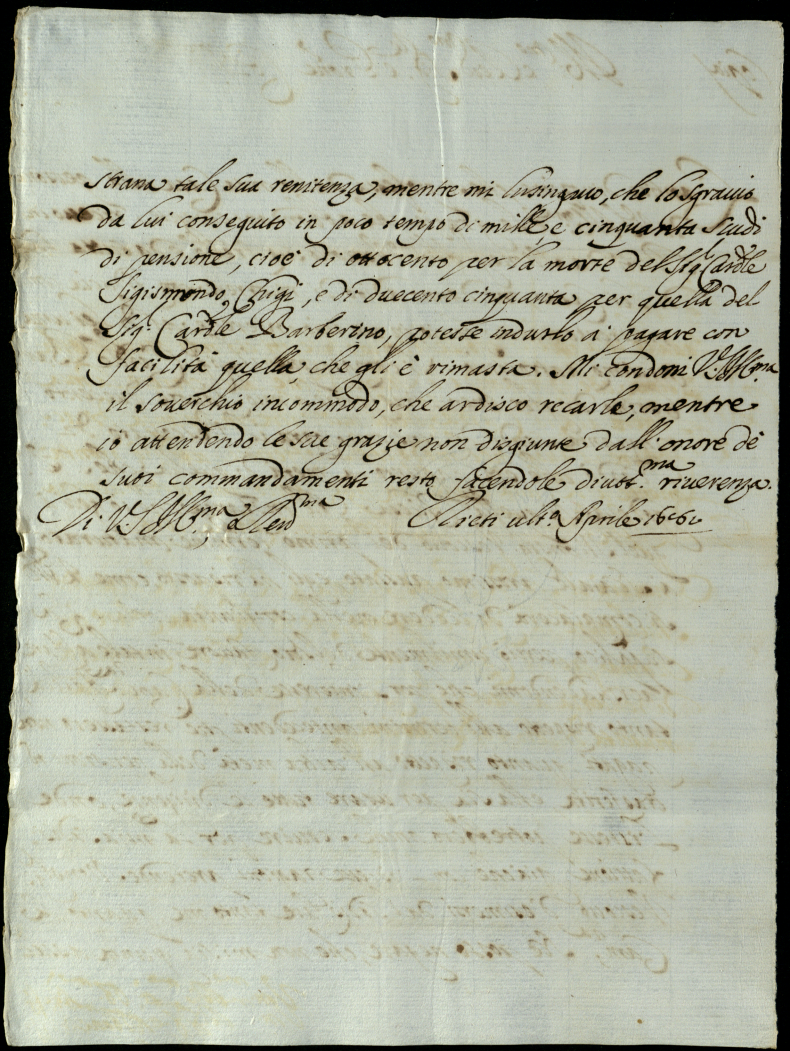 strana tale sua renitenza, mentre mi lusingavo, che lo sgravio
da lui conseguito in poco tempo di mille, e cinquanta Scudi
di pensione, cioè di ottocento per la morte del Sig.r Card.le
Sigismondo Chigi, e di duecento cinquanta per quella del
Sig.r Card.le Barberino, potesse indurlo à pagare con
facilità quella, che gli è rimasta. Mi condoni V.S. Ill.ma
il soverchio incommodo, che ardisco recarle, mentre
io attendendo le sue grazie non disgiunte dall'onore de
suoi commandamenti resto facendole divot.ma riverenza.
Di V.S. Ill.ma, e Rev.ma Rieti ult.o Aprile